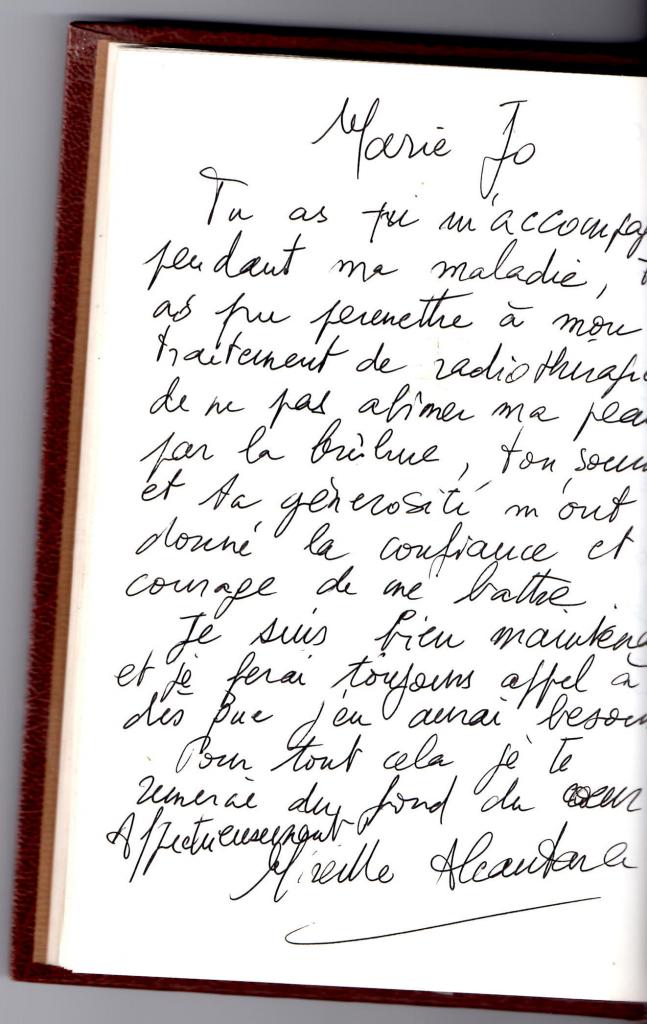 Marie Jo
Tu as su m'accompag
pendant ma maladie, t
as pu permettre à mon
traitement de radiothérapi
de ne pas abimer ma peau
par la brûlure, ton sour
et ta générosité m'ont
donné la confiance et
courage de me battre.
Je suis bien mainten
et je ferai toujours appel à
dès que j'en aurai besoin
Pour tout cela je te
remercie du fond du coeur
Affectueusement
Mireille Alcantara